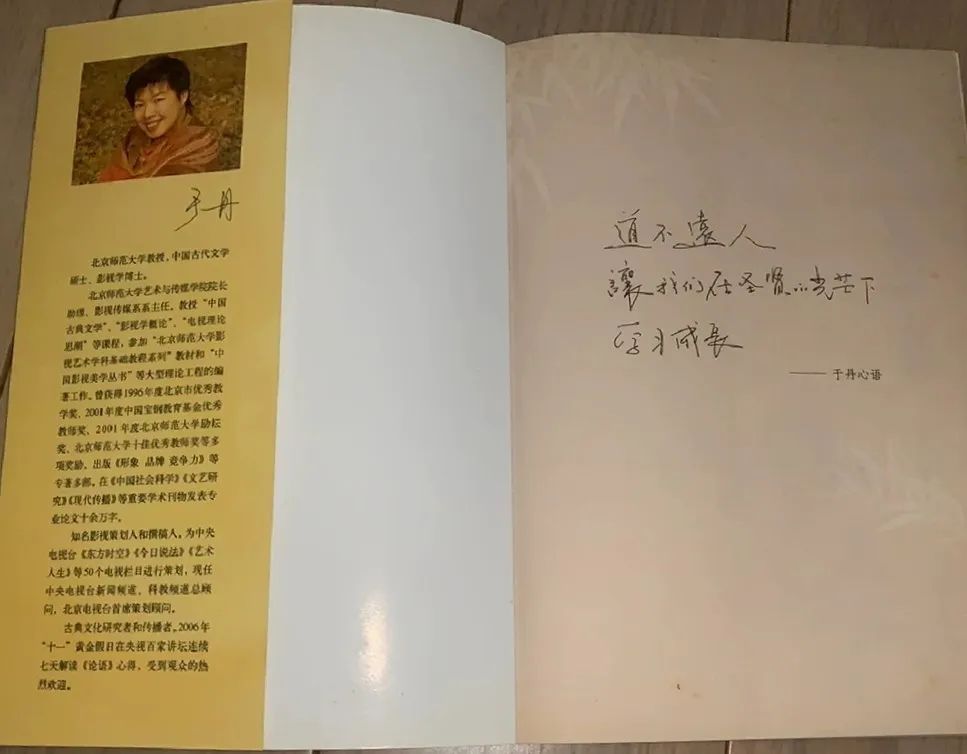 于丹
北京师范大学教授，中国古代文学
硕士、影视学博士。
北京师范大学艺术与传媒学院院长
助理、影视传媒系系主任。教授“中国
古典文学”、“影视学概论”、“电视理论
思潮”等课程，参加“北京师范大学影
视艺术学科基础教程系列”教材和“中
国影视美学丛书”等大型理论工程的编
著工作。曾获得1996年度北京市优秀教
学奖、2001年度中国宝钢教育基金优秀
教师奖、2001年度北京师范大学励耘
奖、北京师范大学十佳优秀教师奖等多
项奖励。出版《形象 品牌 竞争力》等
专著多部。在《中国社会科学》《文艺研
究》《现代传播》等重要学术刊物发表专
业论文十余万字。
知名影视策划人和撰稿人。为中央
电视台《东方时空》《今日说法》《艺术
人生》等50个电视栏目进行策划，现任
中央电视台新闻频道、科教频道总顾
问，北京电视台首席策划顾问。
古典文化研究者和传播者。2006年
“十一”黄金假日在央视百家讲坛连续
七天解读《论语》心得，受到观众的热
烈欢迎。
道不遠人
讓我们在圣贤的光芒下
学习成長
——于丹心语